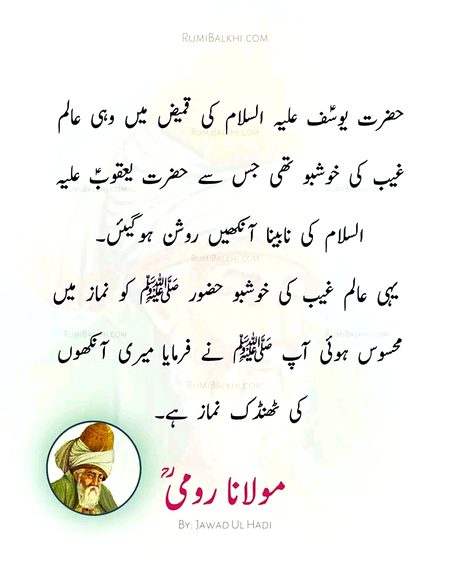 RUMIBALKHI.COM
حضرت یوسفؑ علیہ السلام کی قمیض میں وہی عالم
غیب کی خوشبو تھی جس سے حضرت یعقوبؑ علیہ
السلام کی نابینا آنکھیں روشن ہوگیئں۔
یہی عالم غیب کی خوشبو حضور ﷺ کو نماز میں
محسوس ہوئی آپ ﷺ نے فرمایا میری آنکھوں
کی ٹھنڈک نماز ہے۔
مولانا رومیؒ
BY: JAWAD UL HADI